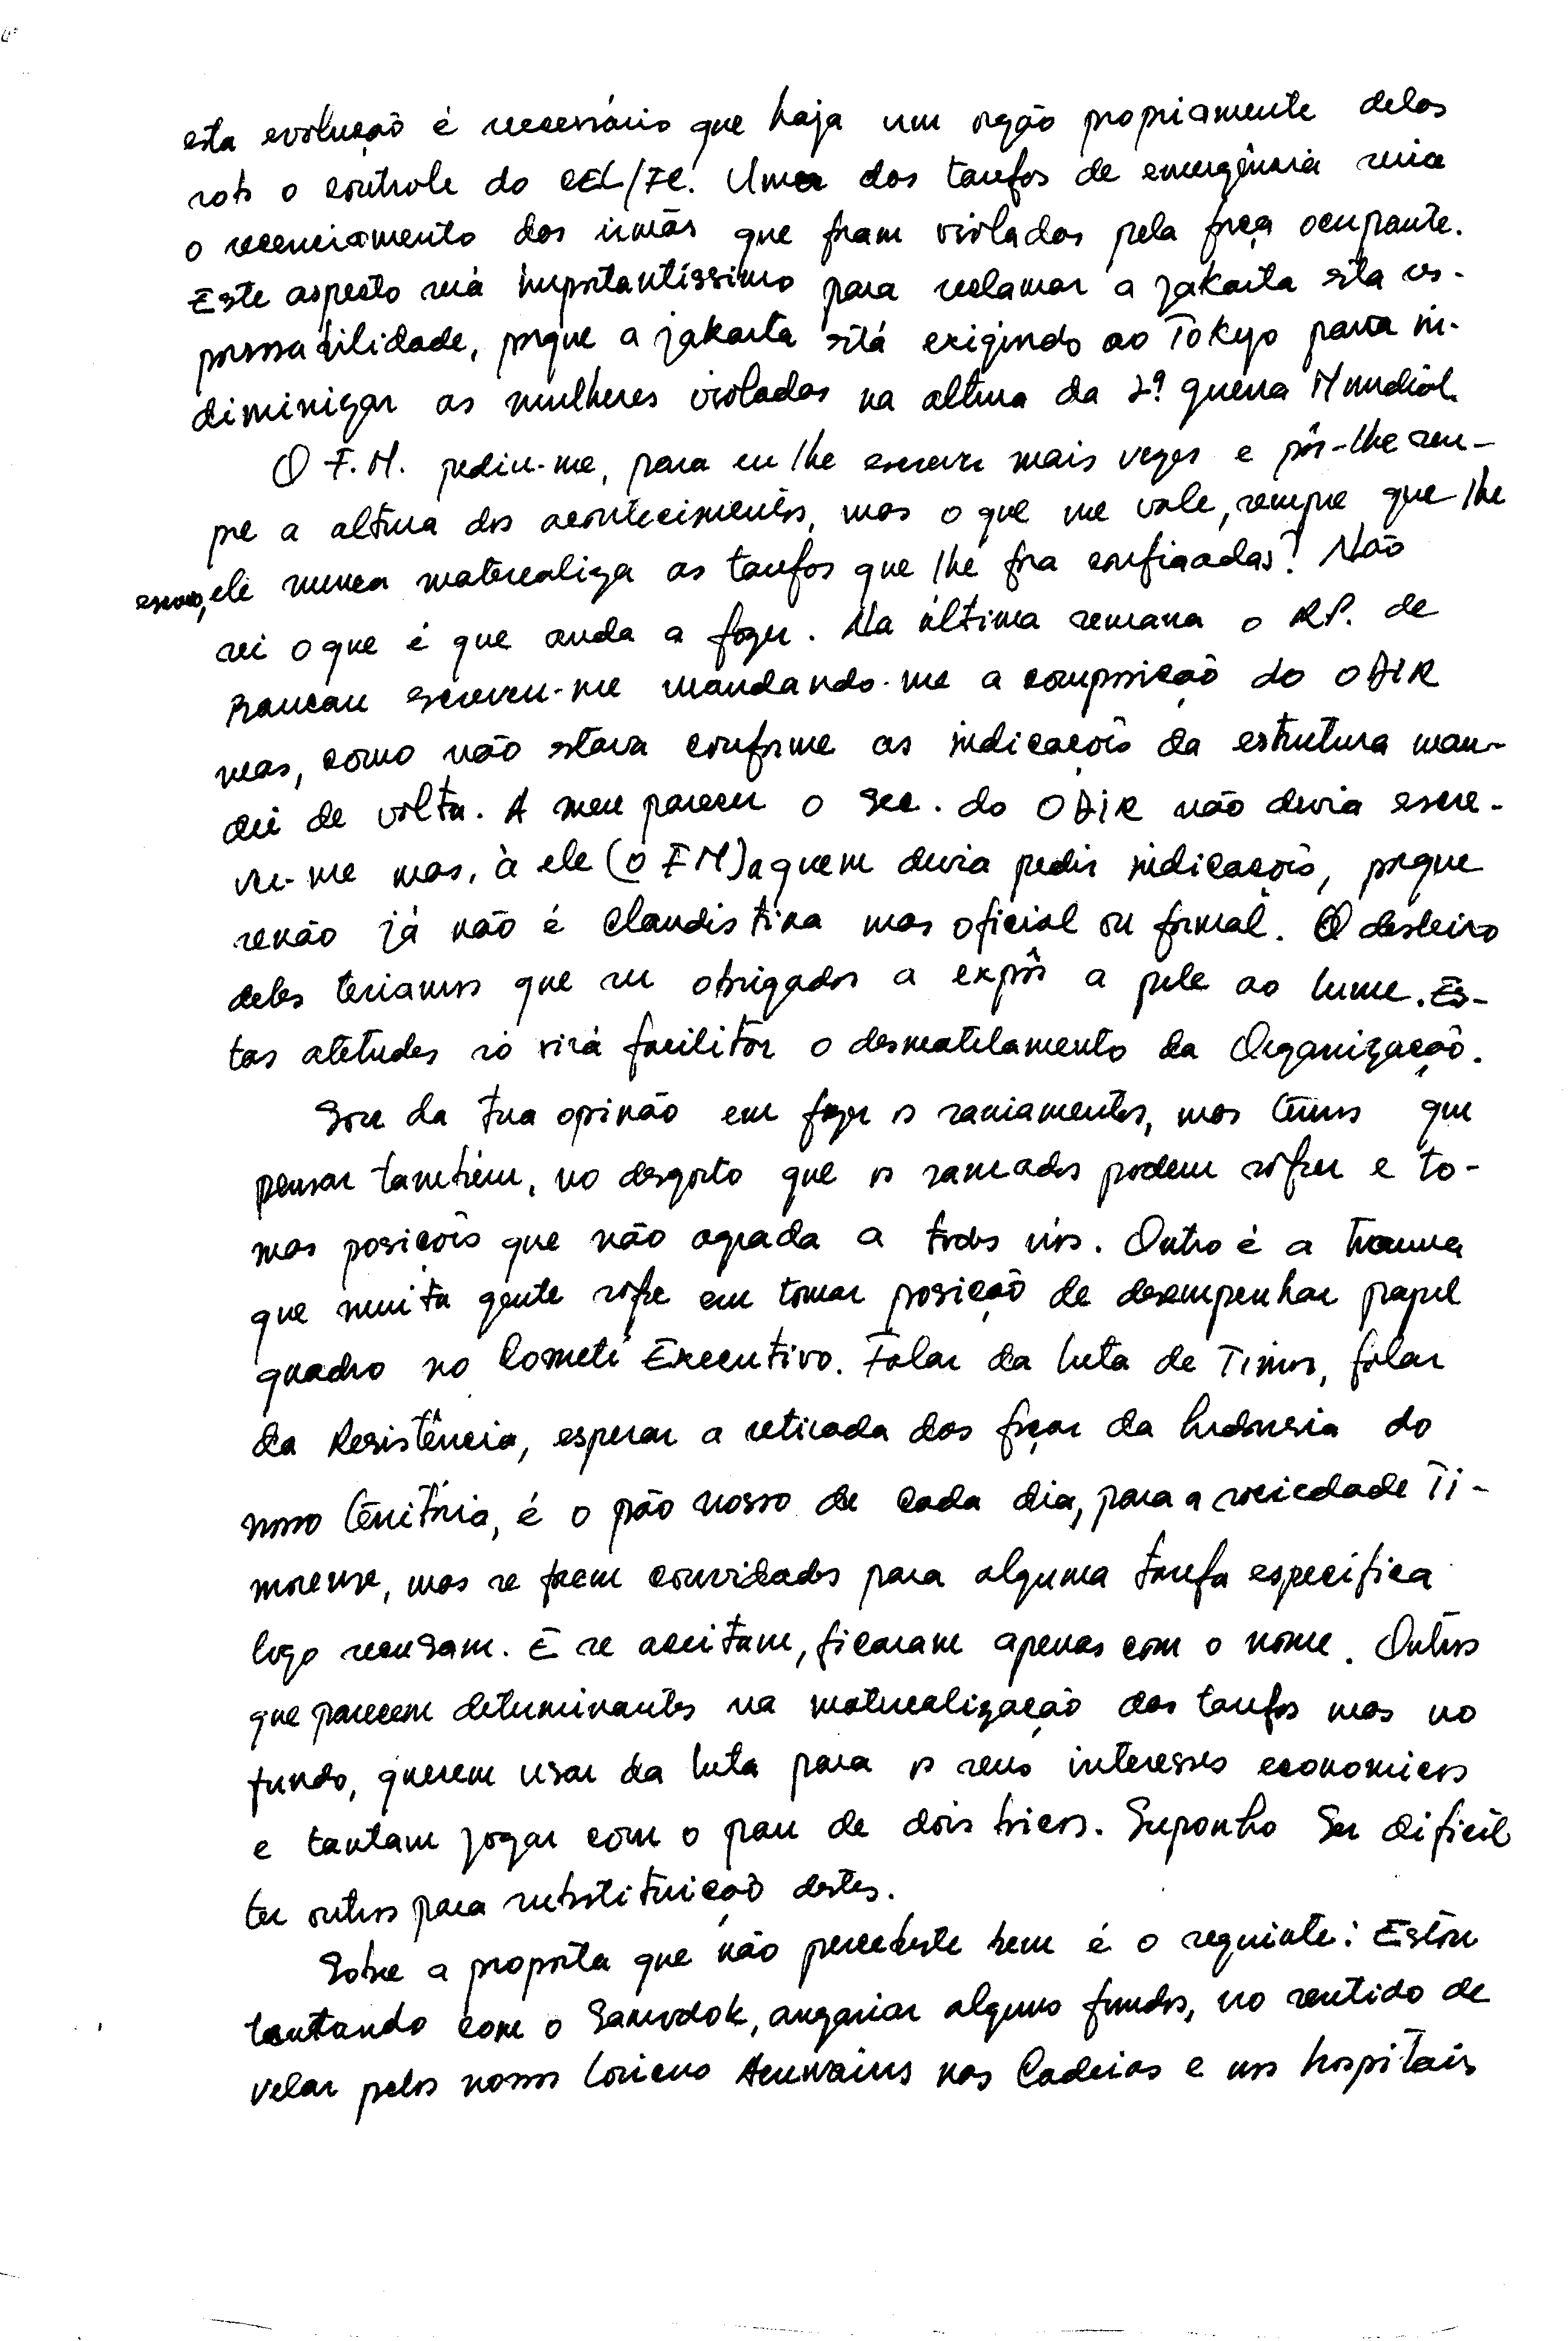 esta evolução é necessário que haja um orgão propriamente delas
sob o controle do CEL/FC. Uma das tarefas de emergência seria
o recenciamento das irmãs que foram violadas pela força ocupante.
Este aspecto será importantíssimo para reclamar a Jakarta esta res-
ponssabilidade, porque a Jakarta está exigindo ao Tokyo para in-
diminizar as mulheres violadas na altura da 2ª guerra Mundial.
O F.M. pediu-me, para eu lhe escrever mais vezes e pôr-lhe sem-
pre a altura dos acontecimentos, mas o que me vale, sempre que lhe
escrevo, ele nunca materealiza as tarefas que lhe fora confiaadas? Não
sei o que é que anda a fazer. Na última semana o R.P. de
escreveu-me mandando-me a composição do OPIR
mas, como não estava conforme as indicações da estrutura man-
dei de volta. A meu parecer o Sec. do OPIR não devia escre-
ver-me mas, à ele (o FM) a quem devia pedir indicações, porque
senão já não é clandistina mas oficial ou formal. O desleixo
deles teriamos que ser obrigados a expôr a pele ao lume. Es-
tas atetudes só virá facilitar o desmatelamento da Organização.
Sou da tua opinão em fazer os saniamentos, mas temos que
pensar também, no desgosto que os saneados podem sofrer e to-
mar posições que não agrada a todos nós. Outro é a trauma
que muita gente sofre em tomar posição de desempenhar papel
quadro no Cometé Executivo. Falar da luta de Timor, falar
da Resistência, esperar a retirada das forças da Indonésia do
nosso território, é o pão nosso de cada dia, para a sociedade Ti-
morense, mas se forem convidados para alguma tarefa especifica
logo recusam. E se aceitam, ficaram apenas com o nome. Outros
que parecem determinantes na materealização das tarefas mas no
fundo, querem usar da luta para os seus interesses economicos
e tantam jogar com o pau de dois bicos. Suponho ser dificil
ter outros para substituição destes.
Sobre a proposta que não percebeste bem é o seguinte: Estou
tentando com o Samodok, angariar alguns fundos, no sentido de
velar pelos nossos Loricos Aswains nas Cadeias e nos hospitais